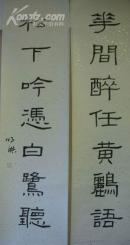 華間醉任黃鸝語
松下吟憑白鷺聽